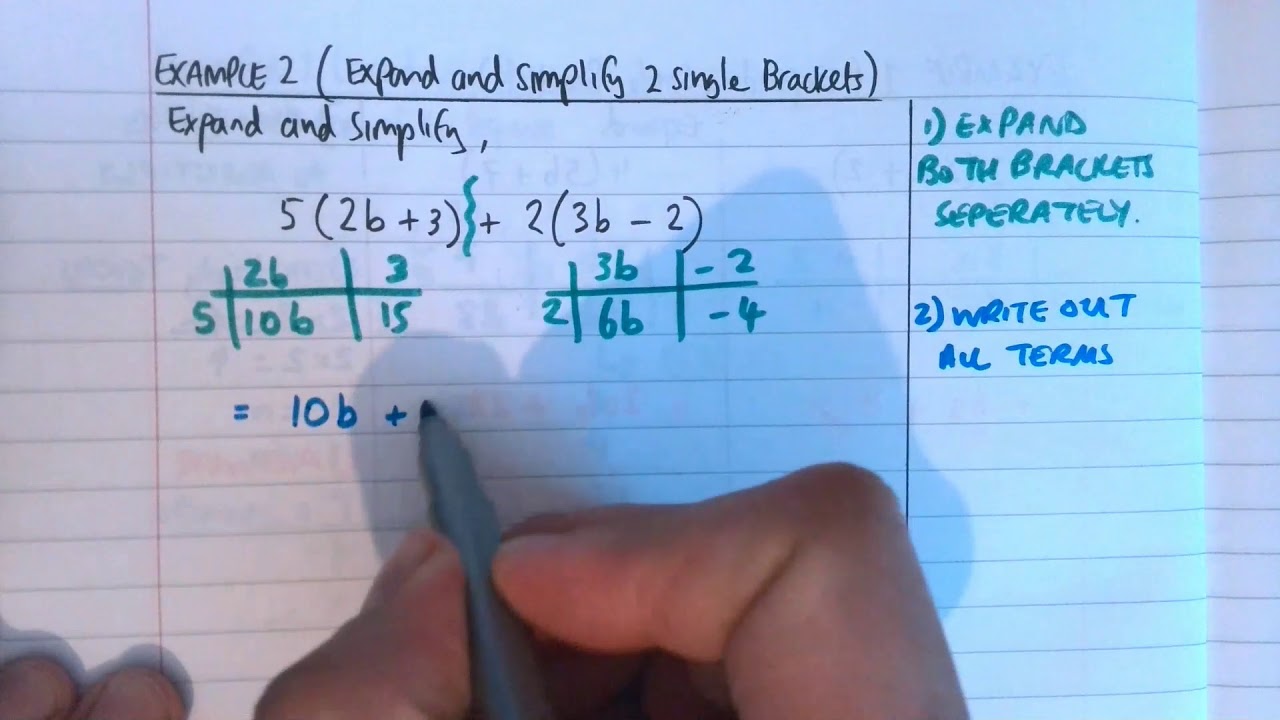 EXAMPLE 2 ( Expand and simplify 2 single Brackets)
Expand and simplify,
5(2b + 3) + 2(3b - 2)
2b 3
5 10b 15
3b - 2
2 6b - 4
= 10b +
1) EXPAND
BOTH BRACKETS
SEPERATELY.
2) WRITE OUT
ALL TERMS